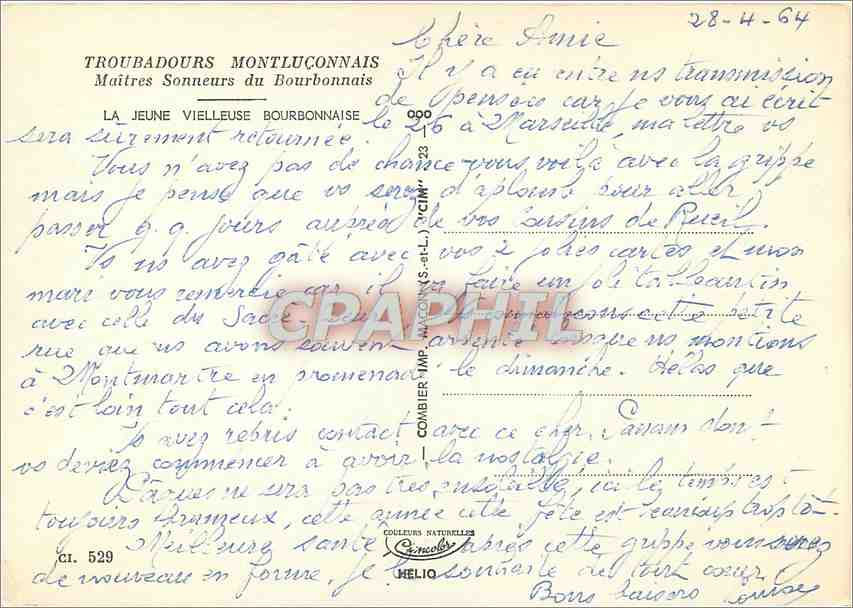 28-4-64
Chère Amie
TROUBADOURS MONTLUÇONNAIS
Maîtres Sonneurs du Bourbonnais
LA JEUNE VIELLEUSE BOURBONNAISE
Il y a eu entre ns transmission
de pensées car je vous ai écrit
le 26 à Marseille, ma lettre vs
sera sûrement retournée.
Vous n'avez pas de chance vous voilà avec la grippe
mais je pense que vs serez d'aplomb pour aller
passer q.q. jours auprès de vos cousins de Rueil.
Vs ns avez gâté avec vos 2 jolies cartes et mon
mari vous remercie car il va faire un joli tableautin
avec celle du Sacré- cette petite
rue que ns avons souvent lorsque ns montions
à Montmartre en promenade le dimanche. Hélas que
c'est loin tout cela.
Vs avez repris contact avec ce cher dont
vs deviez commencer à avoir la nostalgie.
Pâques ne sera pas très ensoleillé, ici le temps est
toujours brumeux, cette année cette fête est beaucoup trop tôt.
Meilleure santé après cette grippe vous serez
de nouveau en forme, je le souhaite de tout cœur.
Bons baisers Louise
COMBIER IMP. MACON (S.-et-L.) "CIM" 23
CI. 529
COULEURS NATURELLES
Cimcolor
HELIO
CPAPHIL